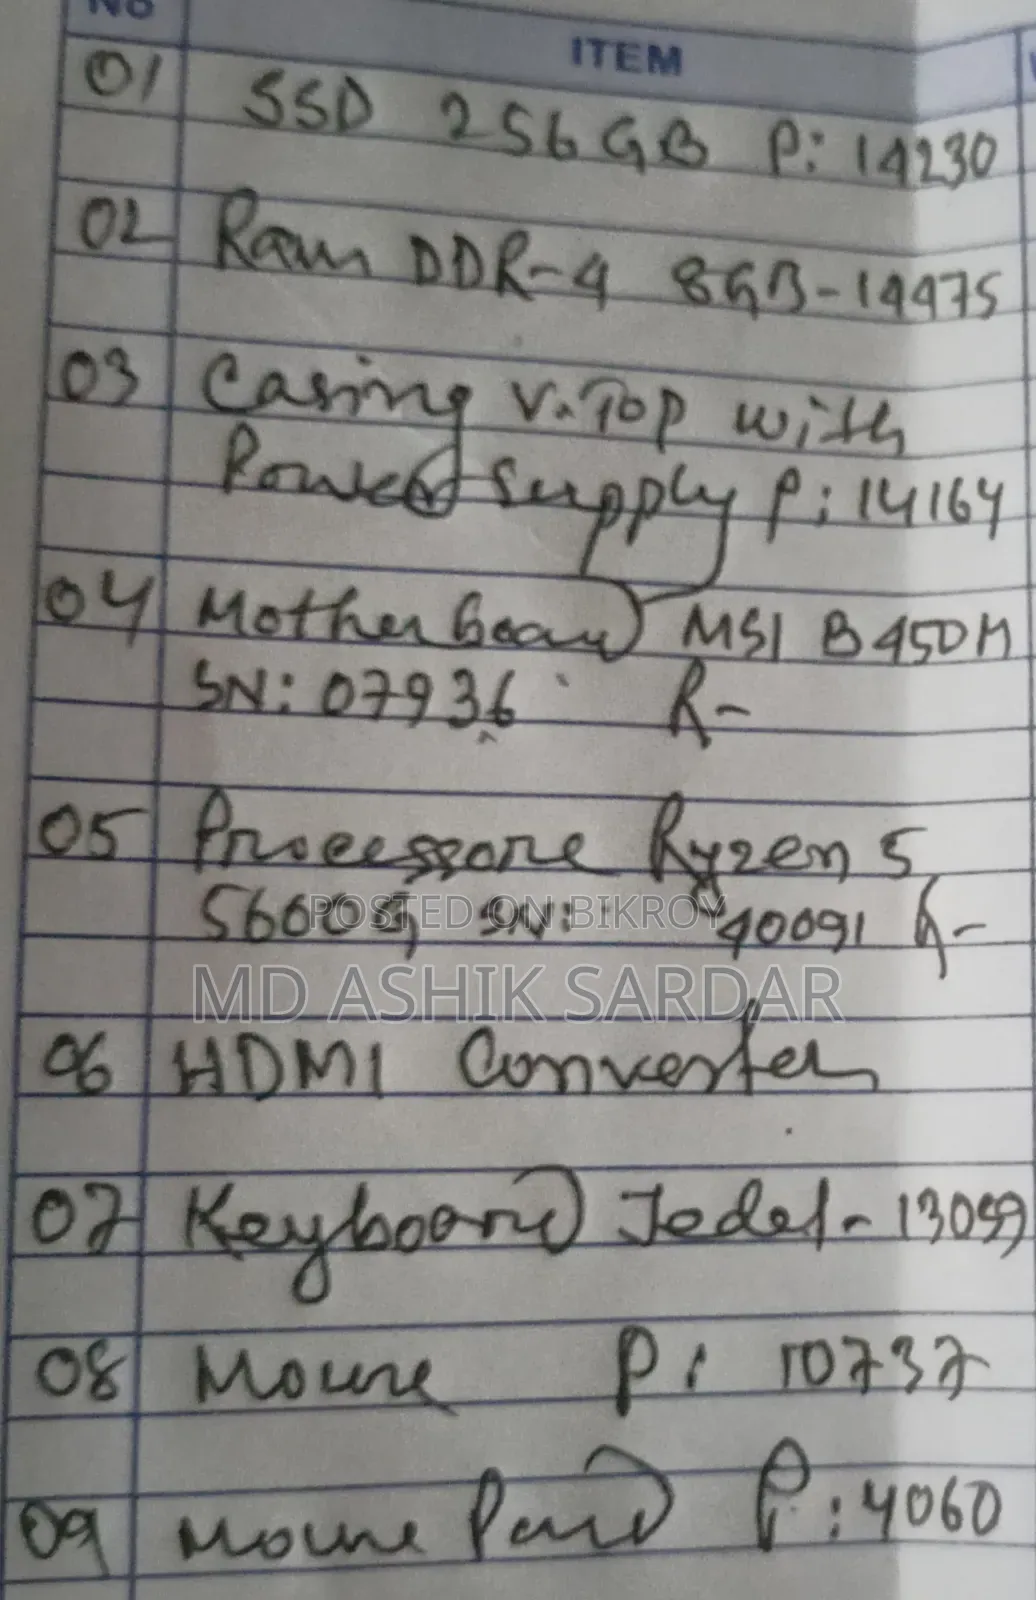 NO ITEM
01 SSD 256GB P: 14230
02 Ram DDR-4 8GB-14475
03 Casing V.Top with
Power Supply P: 14164
04 Motherboard MSI B450M
SN: 07936 R-
05 Processore Ryzen 5
5600G SN: 40091 R-
POSTED ON BIKROY
MD ASHIK SARDAR
06 HDMI Converter
07 Keyboard Jedel - 13059
08 Mouse P: 10737
09 Mouse Pad P: 4060